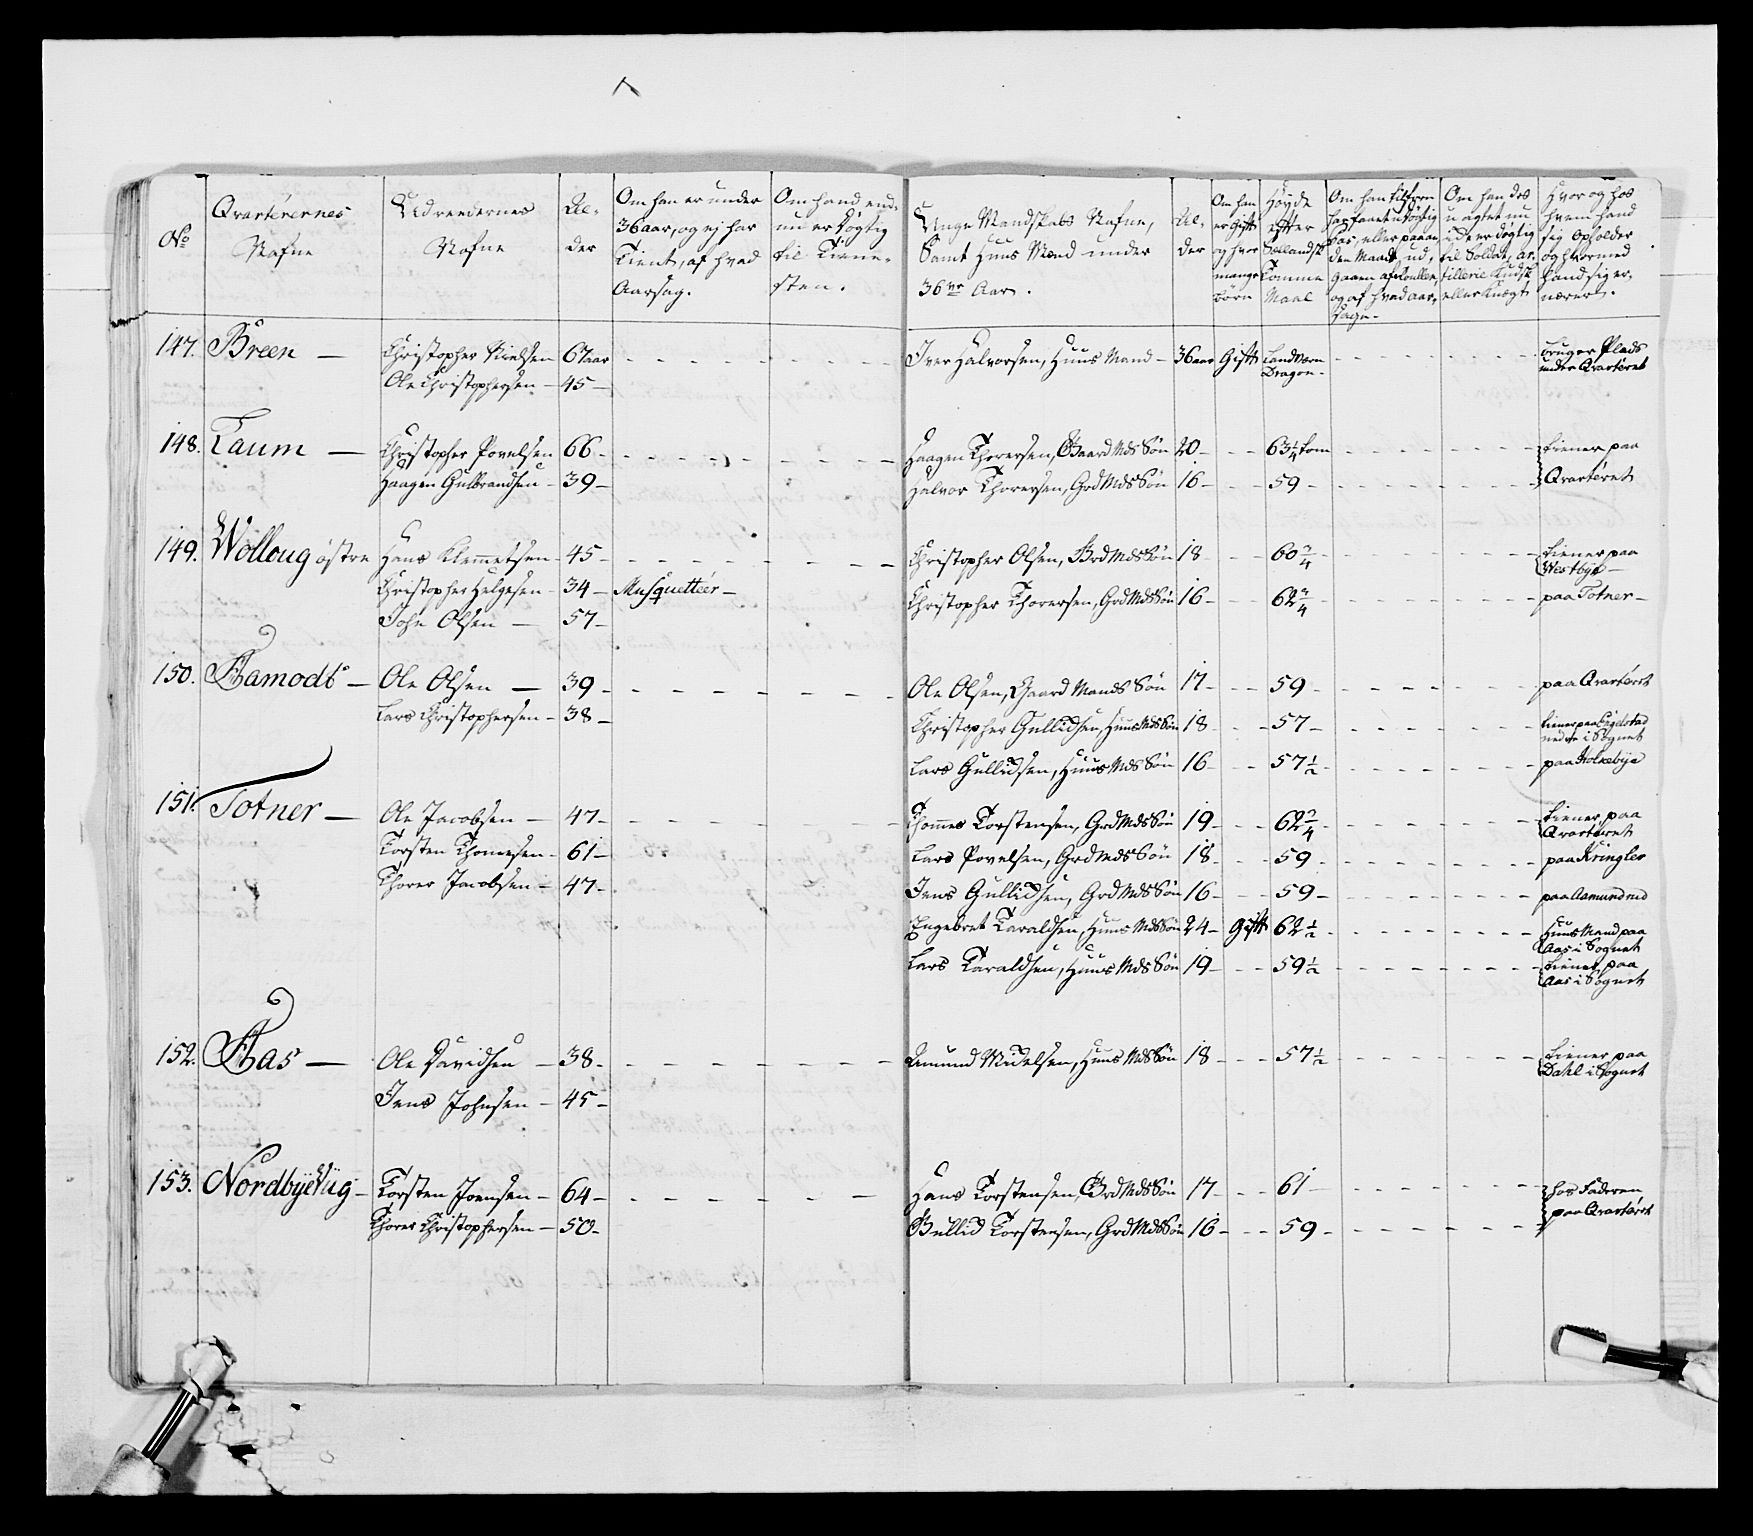 No
Qvarterernes
Nafne
Udreedernes
Nafne
Al-
der
Om han er under
36 aar, og ej har
Tient, af hvad
Aarsag.
Om hand end-
nu er døgtig
til Tiene-
sten.
Unge Mandskabs Nafne,
Samt Huus Mænd under
36ve Aar.
Al-
der
Om han
er Gift
og hvor
mange
børn
Høyde
efter
Sællandsk
Tomme
Maal
Om han des
u agtet nu
Hvor og hos
hvem hand
sig opholder
og hvormed
hand sig er-
nærer.
147. Breen — Christopher Nielsen 67 aar - - - Iver Halvorsen, Huus Mand - 36 aar Gift Landværn Dragon - - - bruger Plads under Qvarteret
Ole Christophersen - 45 -
148. Taum — Christopher Povelsen 66 - - - Haagen Thorersen, Gaard Mds Søn 20 - - - 63 1/4 tom - - - tiener paa
Haagen Gulbrandsen - 39 - Halvor Thorersen, Grd Mds Søn 16 - - - 59 - - - Qvarteret
149. Wolloug østre Hans Klemmetsen - 45 - - - Christopher Olsen, Grd Mds Søn 18 - - - 60 3/4 - - - tiener paa Westbye -
Christopher Helgesen - 34 - Musquetteer - Christopher Thorersen, Grd Mds Søn 16 - - - 62 3/4 - - - paa Totner -
John Olsen — 57 -
150. Aamodt — Ole Olsen — 39 - - - Ole Olsen, Gaard Mands Søn 17 - - - 59 - - - paa Qvarteret
Lars Christophersen - 38 - Christopher Gullidsen, Huus Mds Søn 18 - - - 57 - - - tiener paa Engelstad nedre i Sognet
Lars Gullidsen, Huus Mds Søn 16 - - - 57 1/2 - - - paa Holkebye
151. Totner — Ole Jacobsen — 47 - - - Thomes Torstensen, Grd Mds Søn 19 - - - 62 3/4 - - - tiener paa Qvarteret
Torsten Thomesen - 61 - Lars Povelsen, Grd Mds Søn 18 - - - 59 - - - paa Kringler
Thorer Jacobsen - 47 - Jens Gullidsen, Grd Mds Søn 16 - - - 59 - - - paa Aamundrud
Engebret Taraldsen, Huus Mds Søn 24 - Gift 62 1/2 - - - Huus Mand paa Aas i Sognet
Lars Taraldsen, Huus Mds Søn 19 - - - 59 1/2 - - - tiener paa Aas i Sognet
152. Aas — Ole Davidsen — 38 - - - Amund Mickelsen, Huus Mds Søn 18 - - - 57 1/2 - - - tiener paa Dahl i Sognet
Jens Johnsen — 45 -
153. Nordbye Ug - Torsten Joensen - 64 - - - Hans Torstensen, Grd Mds Søn 17 - - - 61 - - - hos Faderen
Thorer Christophersen — 50 - Gullid Torstensen, Grd Mds Søn 16 - - - 59 - - - paa Qvarteret